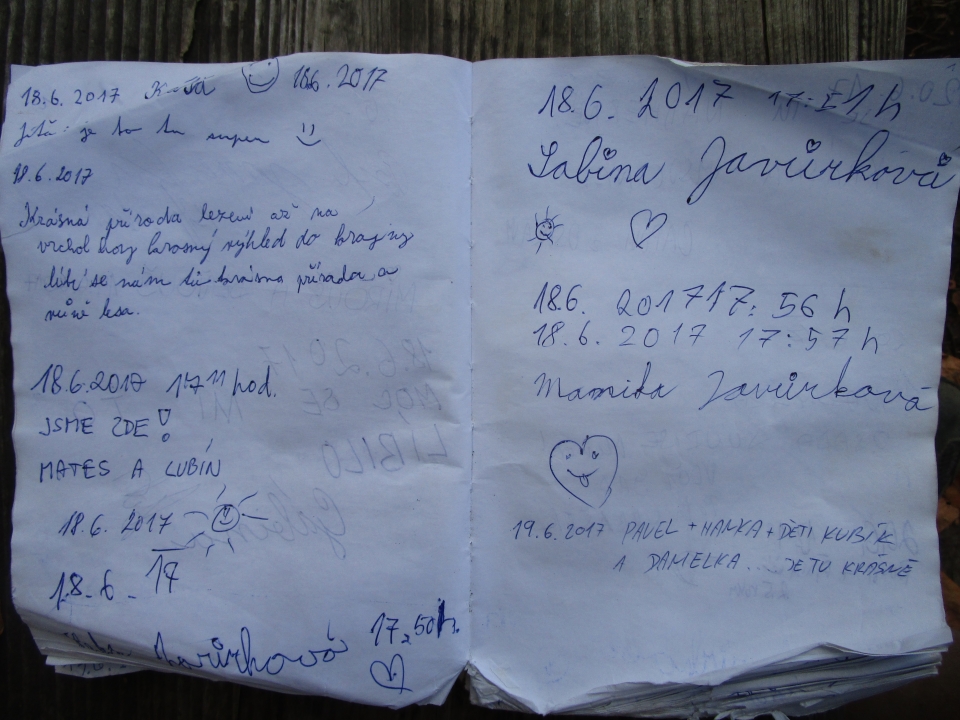 18.6. 2017 18.6. 2017
je to tu super
18.6.2017
Krásná příroda lezení až na
vrchol hory krásný výhled do krajiny
líbí se nám tu krásná příroda a
vůně lesa.
18.6.2017 17 11 hod.
JSME ZDE!
MATES A LUBÍN
18.6. 2017
18. 6. 17
Javůrková 17,50 h.
18.6. 2017 h
Sabina Javůrková
18.6. 2017 17:56 h
18.6. 2017 17:57 h
Javůrková
19.6.2017 PAVEL + HANKA + DĚTI KUBÍK
A DANIELKA... JE TU KRÁSNĚ